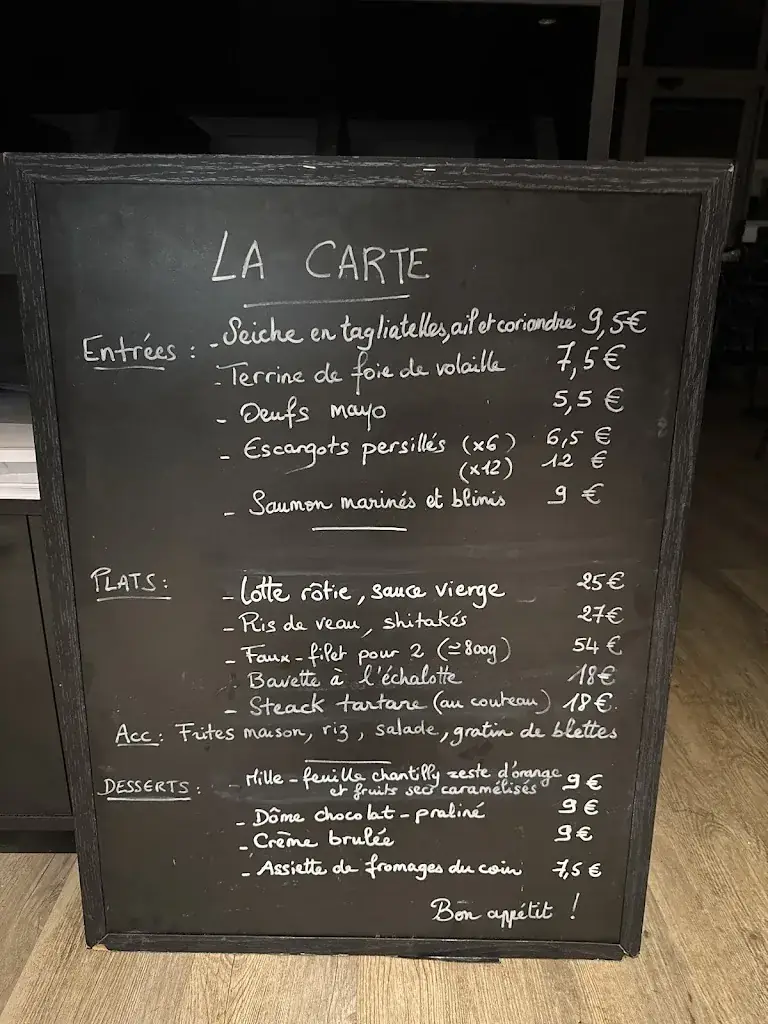 LA CARTE
Entrées : - Seiche en tagliatelles, ail et coriandre 9,5€
- Terrine de foie de volaille 7,5€
- Oeufs mayo 5,5 €
- Escargots persillés (x6) 6,5 €
(x12) 12 €
- Saumon marinés et blinis 9 €
PLATS : - Lotte rôtie, sauce vierge 25€
- Ris de veau, shitakés 27€
- Faux-filet pour 2 (≃800g) 54 €
Bavette à l'échalotte 18€
- Steack tartare (au couteau) 18€
Acc : Frites maison, riz, salade, gratin de blettes
DESSERTS : - Mille-feuille chantilly zeste d'orange 9 €
et fruits secs caramélisés
- Dôme chocolat-praliné 9 €
- Crème brulée 9€
- Assiette de fromages du coin 7,5 €
Bon appétit !